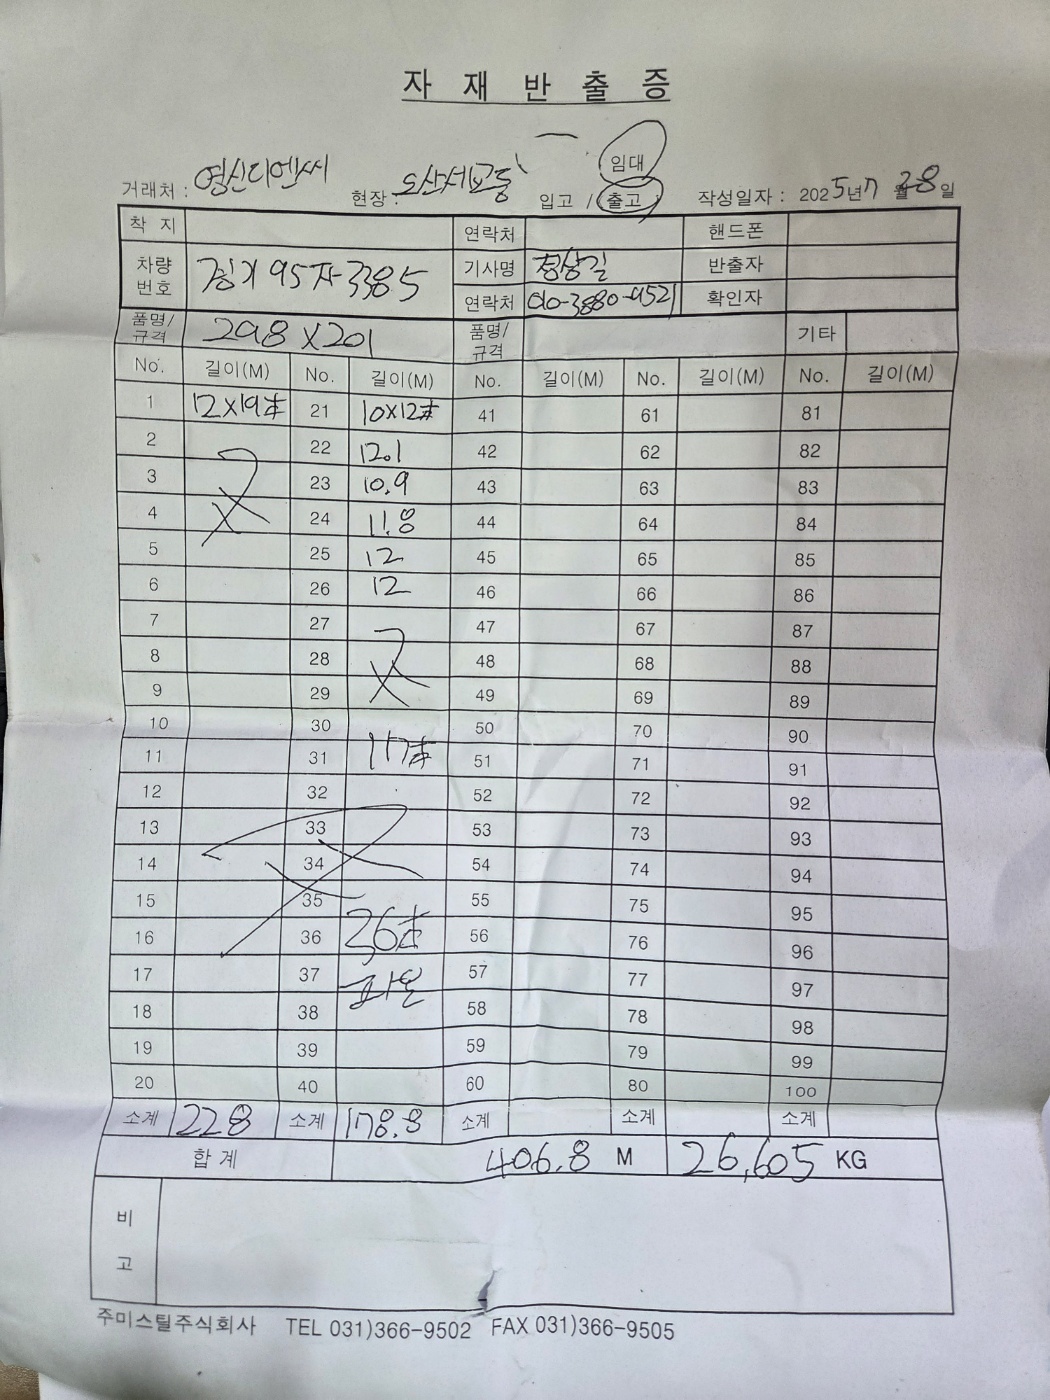 자 재 반 출 증
임대
거래처 : 영신디엔씨 현장 : 오산세교동 입고 / 출고 작성일자 : 2025년 7월 28일
착 지 연락처 핸드폰
차량번호 경기95자3385 기사명 정상길 반출자
연락처 010-3880-9521 확인자
품명/규격 298X201 품명/규격 기타
No. 길이(M) No. 길이(M) No. 길이(M) No. 길이(M) No. 길이(M)
1 12X19本 21 10X12本 41 61 81
2 22 12.1 42 62 82
3 23 10.9 43 63 83
4 24 11.8 44 64 84
5 25 12 45 65 85
6 26 12 46 66 86
7 27 47 67 87
8 28 48 68 88
9 29 49 69 89
10 30 50 70 90
11 31 17本 51 71 91
12 32 52 72 92
13 33 53 73 93
14 34 54 74 94
15 35 55 75 95
16 36 36本 56 76 96
17 37 파일 57 77 97
18 38 58 78 98
19 39 59 79 99
20 40 60 80 100
소계 228 소계 178.8 소계 소계 소계
합 계 406.8 M 26,605 KG
비고
주미스틸주식회사 TEL 031)366-9502 FAX 031)366-9505